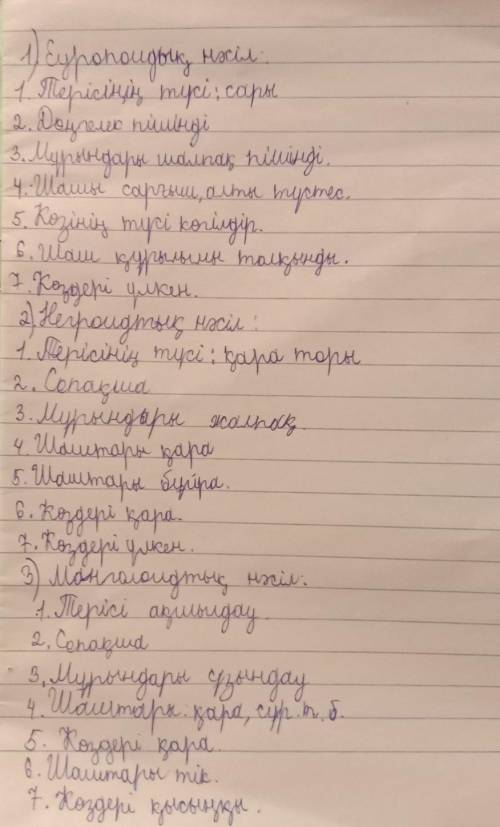 1) Еуропоидық нәсіл:
1. Терісінің түсі: сары
2. Дөңгелек пішінді
3. Мұрындары шалпақ пішінді.
4. Шашы сарғыш, алты түстес.
5. Көзінің түсі көгілдір.
6. Шаш құрылымы толқынды.
7. Көздері үлкен.
2) Негроидтық нәсіл:
1. Терісінің түсі: қара торы
2. Сопақша
3. Мұрындары жалпақ
4. Шаштары қара
5. Шаштары бұйра.
6. Көздері қара.
7. Көздері үлкен.
3) Манголоидтық нәсіл:
1. Терісі ақшылдау.
2. Сопақша
3. Мұрындары ұзындау
4. Шаштары: қара, сұр. т. б.
5. Көздері қара.
6. Шаштары тік.
7. Көздері қысыңқы.